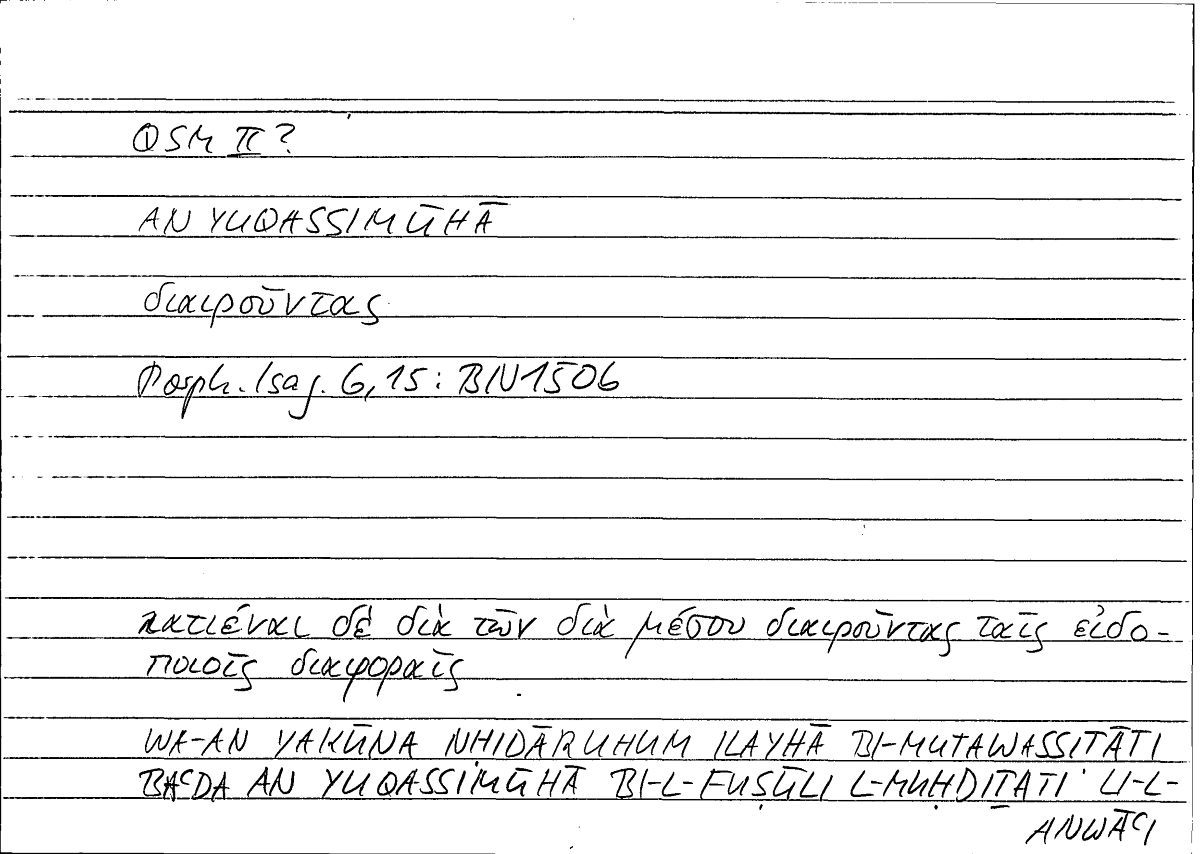 QSM II?
AN YUQASSIMŪHĀ
διαιροῦντας
Porph. Isag. 6,15: BN1506
κατιέναι δὲ διὰ τῶν διὰ μέσου διαιροῦντας ταῖς εἰδο-
ποιοῖς διαφοραῖς
WA-AN YAKŪNA NHIDĀRUHUM ILAYHĀ BI-MUTAWASSITĀTI
BAʿDA AN YUQASSIMŪHĀ BI-L-FUṢŪLI L-MUḤDIṮATI LI-L-
ANWĀʿI